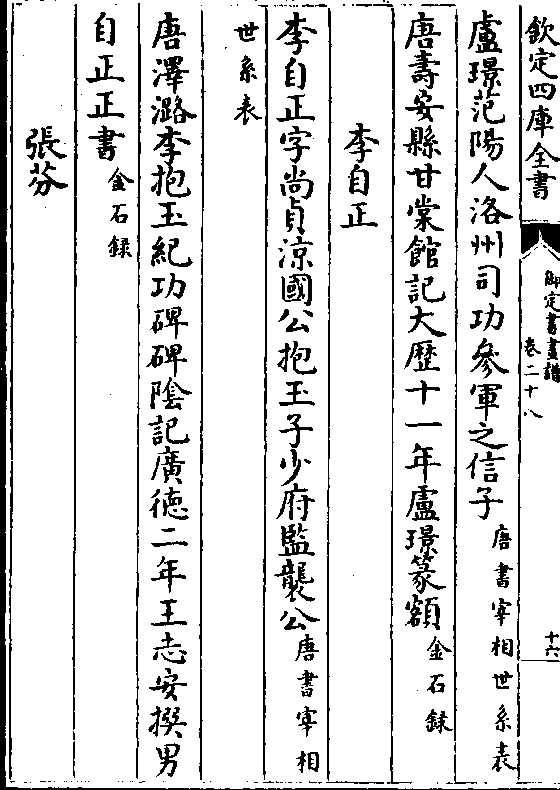 欽定四庫全書
御定書畫譜
卷二十八
十六
盧璟范陽人洛州司功參軍之信子唐書宰相世系表
唐壽安縣甘棠館記大歷十一年盧璟篆額金石録
李自正
李自正字尚貞涼國公抱玉子少府監襲公唐書宰相
世系表
唐澤潞李抱玉紀功碑碑陰記廣徳二年王志安撰男
自正正書金石録
張芬